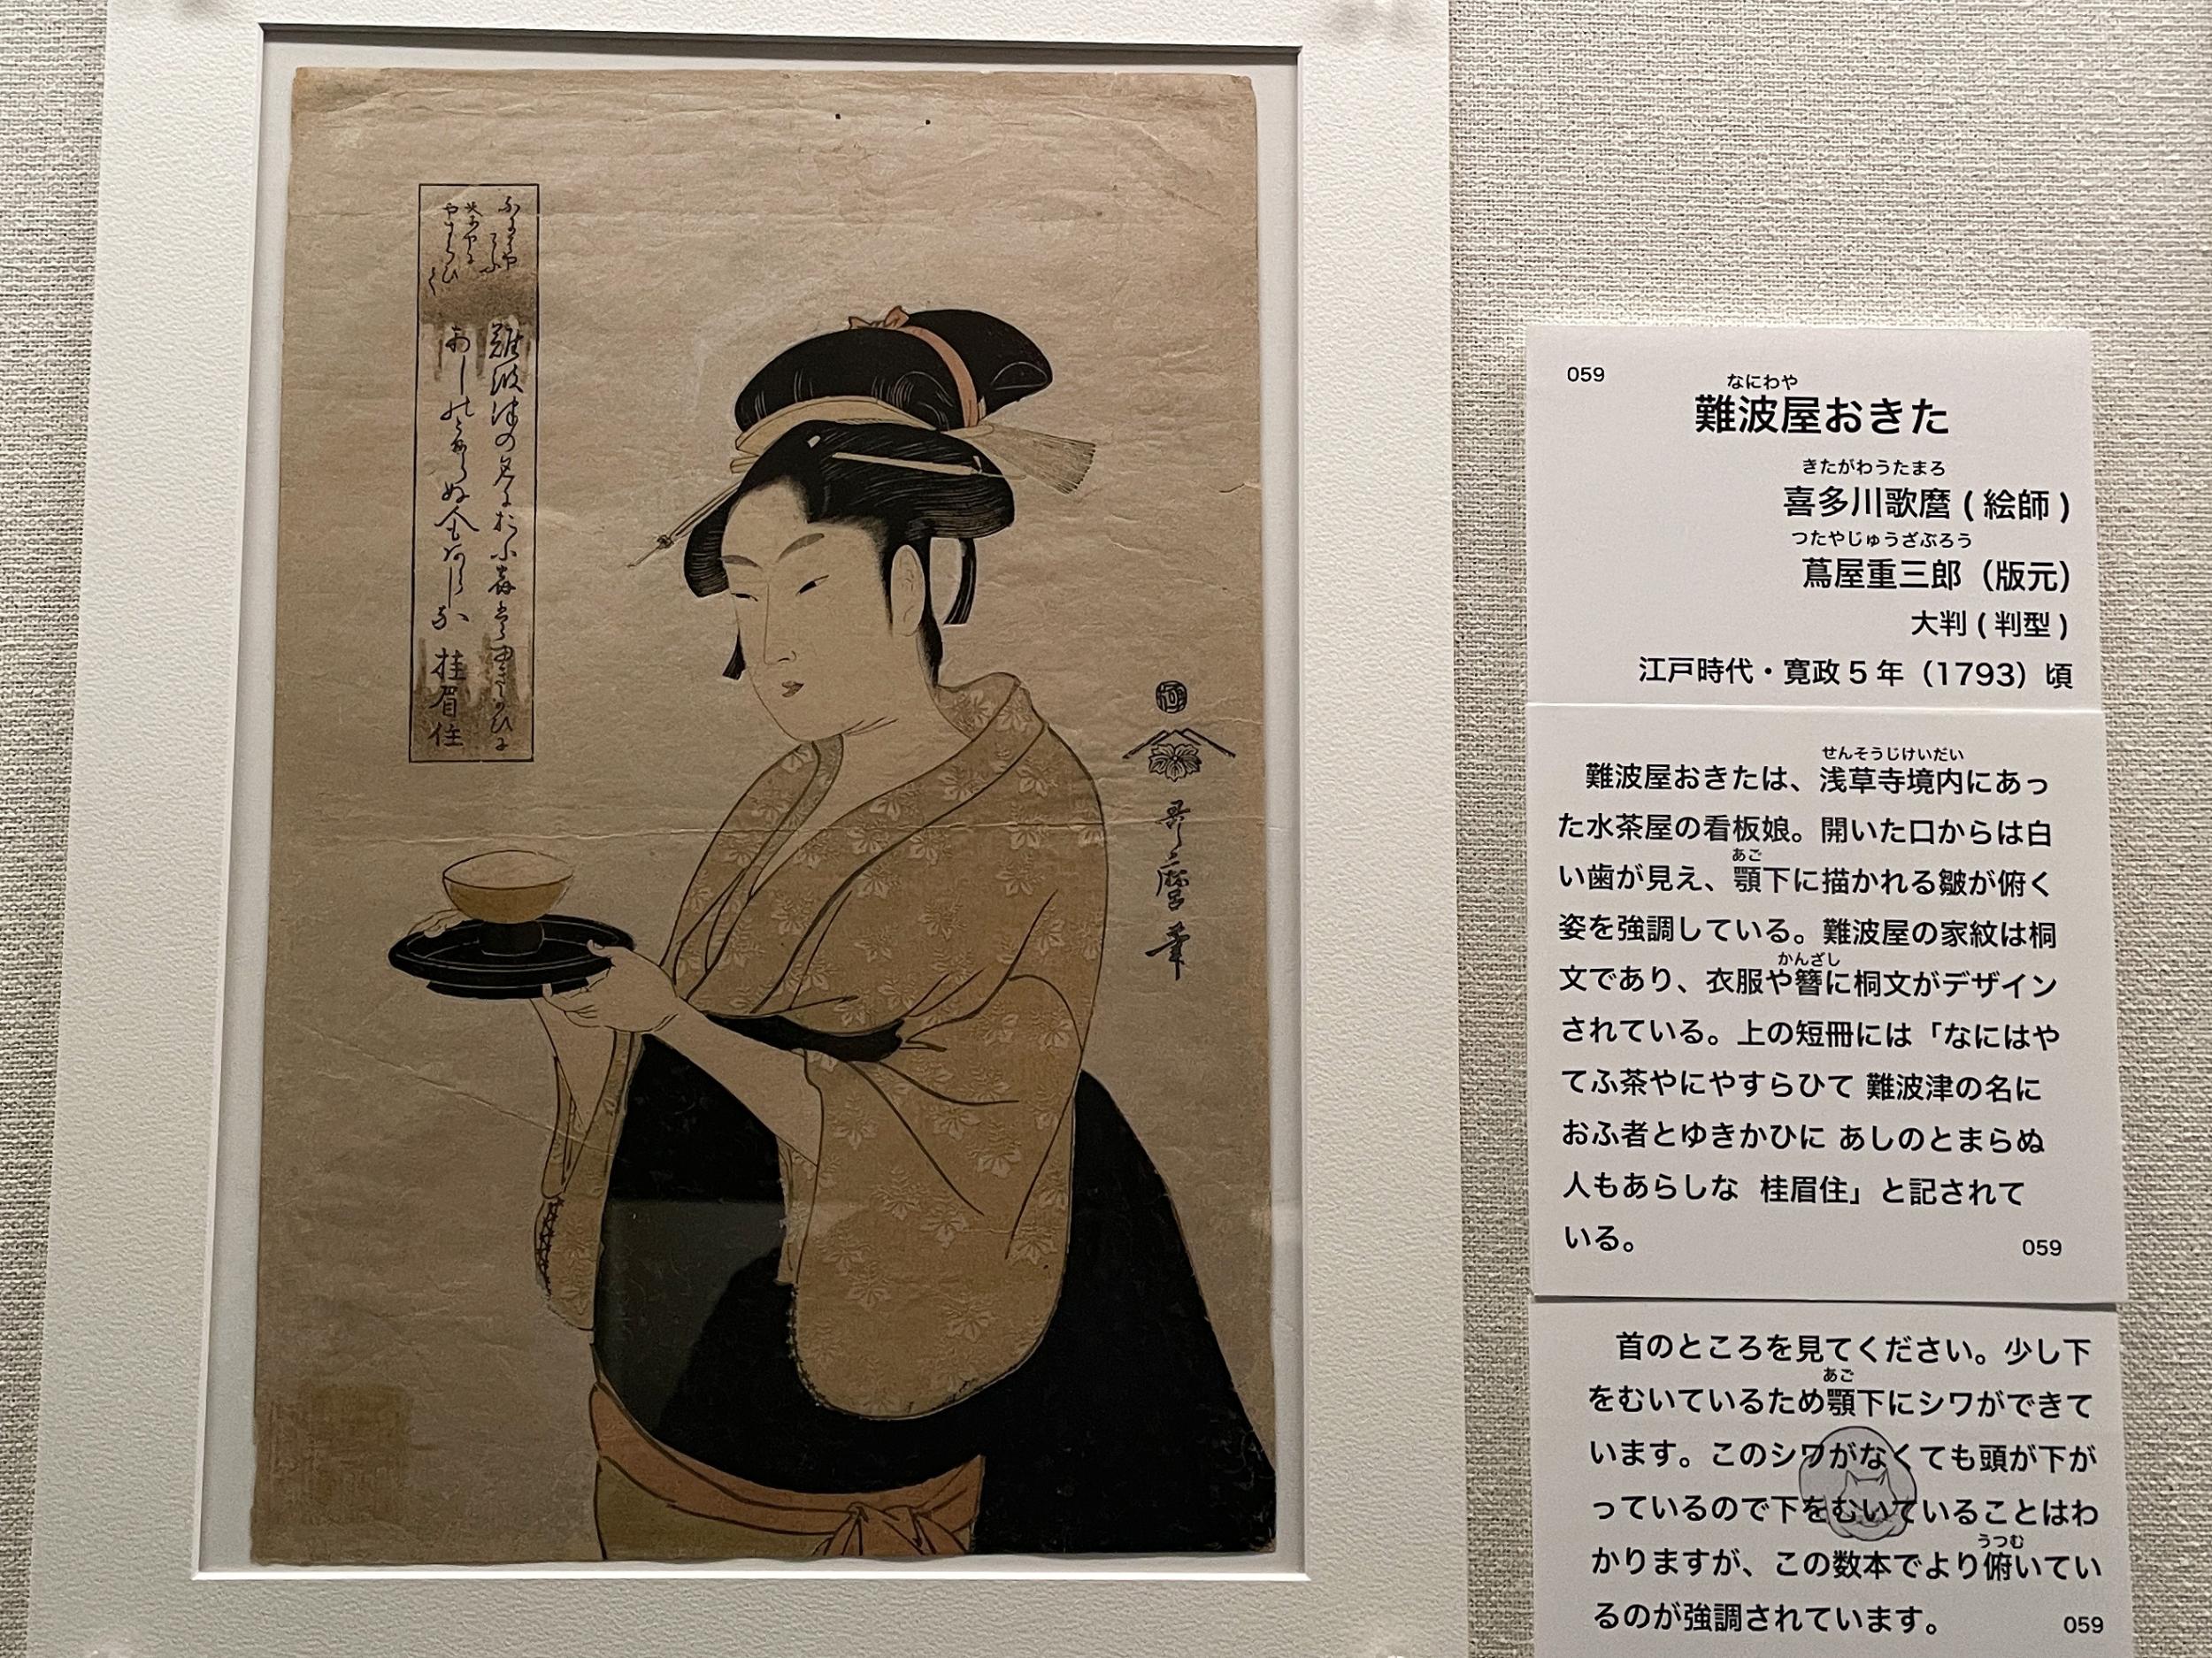 なにはや
てふ
茶やに
やすらひ
て
難波津の名におふ者とゆきかひに
あしのとまらぬ人もあらしな 桂眉住
哥麿筆
059
なにわや
難波屋おきた
きたがわうたまろ
喜多川歌麿 ( 絵師 )
つたやじゅうざぶろう
蔦屋重三郎（版元）
大判 ( 判型 )
江戸時代・寛政 5 年（1793）頃
せんそうじけいだい
難波屋おきたは、浅草寺境内にあっ
た水茶屋の看板娘。開いた口からは白
あご
い歯が見え、顎下に描かれる皺が俯く
姿を強調している。難波屋の家紋は桐
かんざし
文であり、衣服や簪に桐文がデザイン
されている。上の短冊には「なにはや
てふ茶やにやすらひて 難波津の名に
おふ者とゆきかひに あしのとまらぬ
人もあらしな 桂眉住」と記されて
いる。
059
首のところを見てください。少し下
あご
をむいているため顎下にシワができて
います。このシワがなくても頭が下が
っているので下をむいていることはわ
うつむ
かりますが、この数本でより俯いてい
るのが強調されています。
059